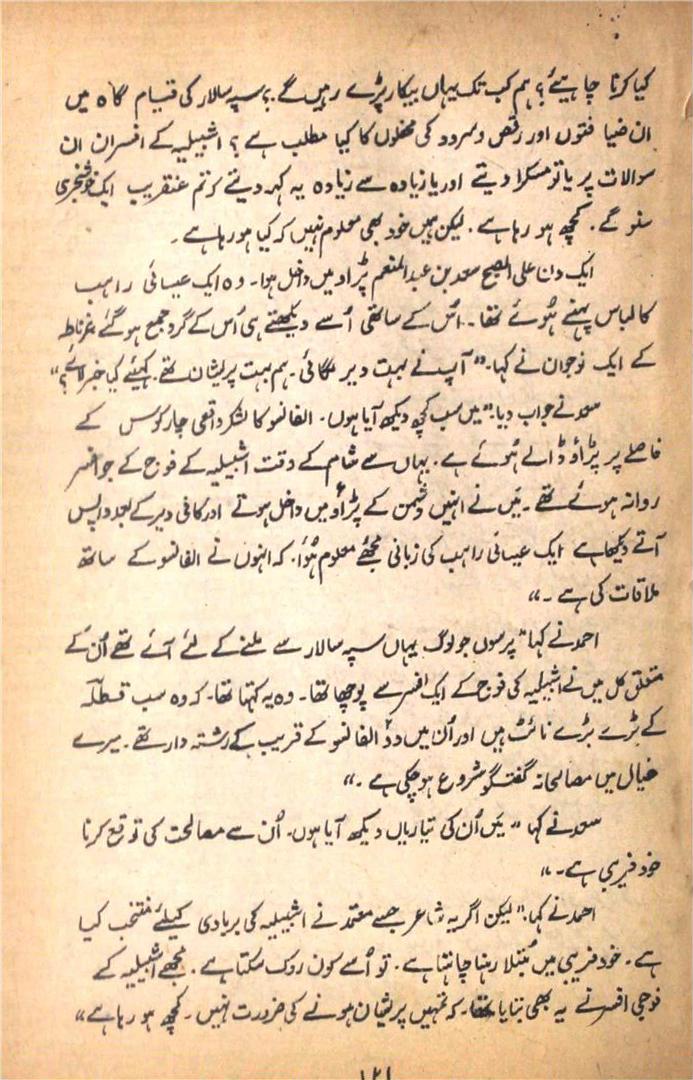 کیا کرنا چاہیئے؟ ہم کب تک یہاں بیکار پڑے رہیں گے ؟ سپہ سالار کی قیام گاہ میں
ان ضیافتوں اور رقص و سرود کی محفلوں کا کیا مطلب ہے ؟ اشبیلیہ کے افسران ان
سوالات پر یا تو مسکرا دیتے اور یا زیادہ سے زیادہ یہ کہہ دیتے کہ تم عنقریب ایک خوشخبری
سنو گے ۔ کچھ ہو رہا ہے ۔ لیکن ہمیں خود بھی معلوم نہیں کہ کیا ہو رہا ہے ۔
ایک دن علی الصبح سعد بن عبدالمنعم پڑاؤ میں داخل ہوا ۔ وہ ایک عیسائی راہب
کا لباس پہنے ہُوئے تھا ۔ اُس کے ساتھی اُسے دیکھتے ہی اُس کے گرد جمع ہو گئے غرناطہ
کے ایک نوجوان نے کہا ۔ " آپ نے بہت دیر لگائی ۔ ہم بہت پریشان تھے ۔ کہیئے کیا خبر لائے ؟ "
سعد نے جواب دیا ۔ " میں سب کچھ دیکھ آیا ہوں ۔ الفانسو کا لشکر واقعی چار کوس کے
فاصلے پر پڑاؤ ڈالے ہُوئے ہے ۔ یہاں سے شام کے وقت اشبیلیہ کے فوج کے جو افسر
روانہ ہوئے تھے ۔ مَیں نے انہیں دشمن کے پڑاؤ میں داخل ہوتے اور کافی دیر کے بعد واپس
آتے دیکھا ہے ایک عیسائی راہب کی زبانی مجھے معلوم ہُوا ۔ کہ انہوں نے الفانسو کے ساتھ
ملاقات کی ہے ۔ "
احمد نے کہا " پرسوں جو لوگ یہاں سپہ سالار سے ملنے کے لئے آئے تھے اُن کے
متعلق کل میں نے اشبیلیہ کی فوج کے ایک افسر سے پوچھا تھا ۔ وہ یہ کہتا تھا ۔ کہ وہ سب قسطلہ
کے بڑے بڑے نائٹ ہیں اور اُن میں دو الفانسو کے قریب کے رشتہ دار تھے ۔ میرے
خیال میں مصالحانہ گفتگو شروع ہو چکی ہے ۔ "
سعد نے کہا " مَیں اُن کی تیاریاں دیکھ آیا ہوں ۔ اُن سے مصالحت کی توقع کرنا
خود فریبی ہے ۔ "
احمد نے کہا ۔ " لیکن اگر یہ شاعر جسے معتمد نے اشبیلیہ کی بربادی کیلئے منتخب کیا
ہے ۔ خود فریبی میں مُبتلا رہنا چاہتا ہے ۔ تو اُسے کون روک سکتا ہے ۔ مجھے اشبیلیہ کے
فوجی افسر نے یہ بھی بتایا تھا ۔ کہ تمہیں پریشان ہونے کی ضرورت نہیں ۔ کچھ ہو رہا ہے "
۱۲۱